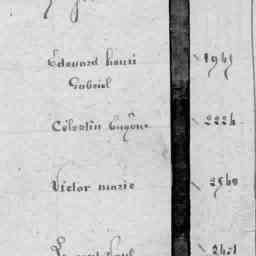 Edouard henri 1965
Gabriel
Célestin Eugène 2224
Victor marie 2560